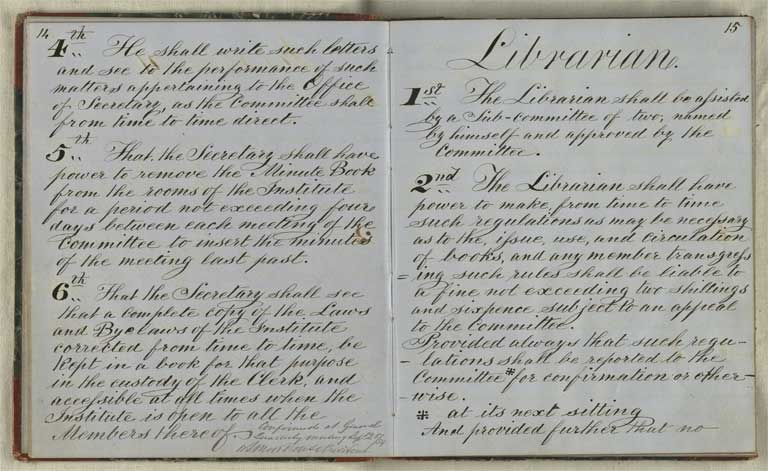 14
4th He shall write such letters
and see to the performance of such
matters appertaining to the Office
of Secretary, as the Committee shall
from time to time direct.
5th That the Secretary shall have
power to remove the Minute Book
from the rooms of the Institute
for a period not exceeding four
days between each meeting of the
Committee to insert the minutes
of the meeting last past.
6th That the Secretary shall see
that a complete copy of the Laws
and Byelaws of the Institute
corrected from time to time, be
kept in a book for that purpose
in the custody of the Clerk, and
accessible at all times when the
Institute is open to all the
Members thereof
Confirmed at General
Quarterly meeting
15
Librarian.
1st The Librarian shall be assisted
by a Sub-committee of two, named
by himself and approved by the
Committee.
2nd The Librarian shall have
power to make, from time to time
such regulations as may be necessary
as to the, issue, use, and circulation
of books, and any member transgress
=ing such rules shall be liable to
a fine not exceeding two shillings
and sixpence subject to an appeal
to the Committee.
Provided always that such regu-
-lations shall be reported to the
Committee * for confirmation or other-
-wise.
* at its next sitting
And provided further that no